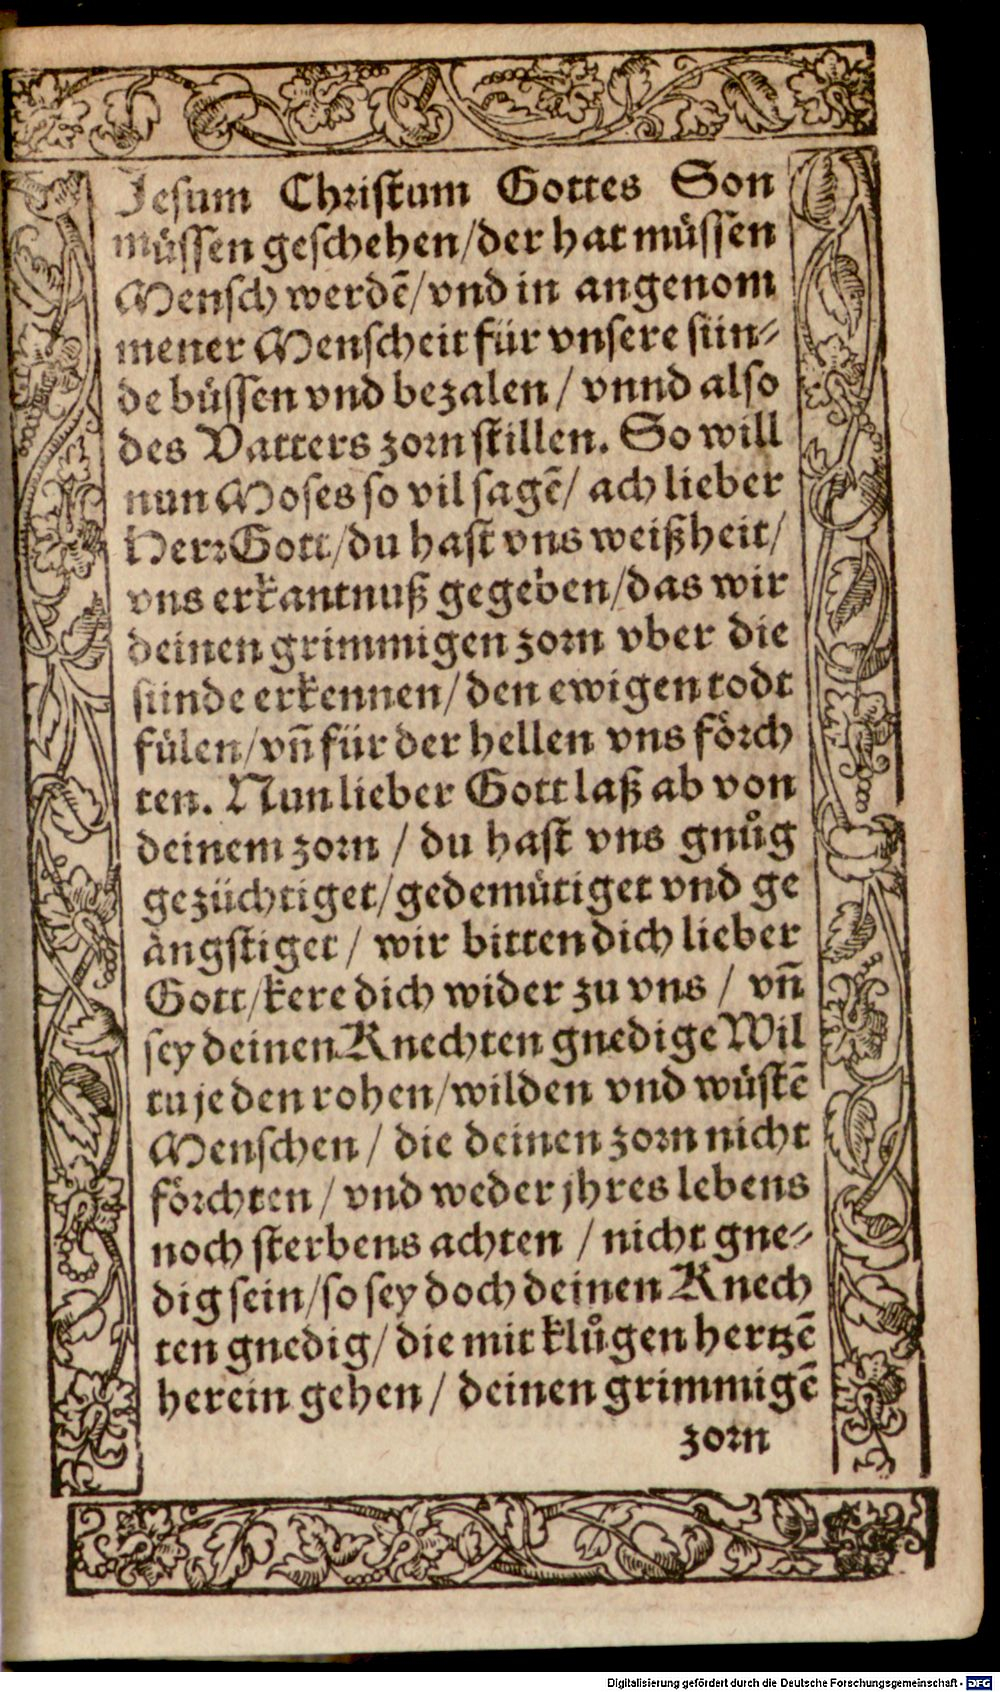 Jesum Christum Gottes Son
müssen geschehen/der hat müssen
Mensch werdē/vnd in angenom
mener Menscheit für vnsere sün⸗
de büssen vnd bezalen / vnnd also
des Vatters zorn stillen. So will
nun Moses so vil sagē/ ach lieber
Herr Gott/du hast vns weißheit/
vns erkantnuß gegeben/das wir
deinen grimmigen zorn vber die
sünde erkennen/den ewigen todt
fülen/vñ für der hellen vns förch
ten. Nun lieber Gott laß ab von
deinem zorn / du hast vns gnůg
gezüchtiget/gedemütiget vnd ge
ängstiget/ wir bitten dich lieber
Gott/kere dich wider zu vns / vñ
sey deinen Knechten gnedige Wil
tu je den rohen/wilden vnd wüstē
Menschen / die deinen zorn nicht
förchten / vnd weder jhres lebens
noch sterbens achten / nicht gne⸗
dig sein/so sey doch deinen Knech
ten gnedig/ die mit klůgen hertzē
herein gehen / deinen grimmigē
zorn
Digitalisierung gefördert durch die Deutsche Forschungsgemeinschaft - DFG